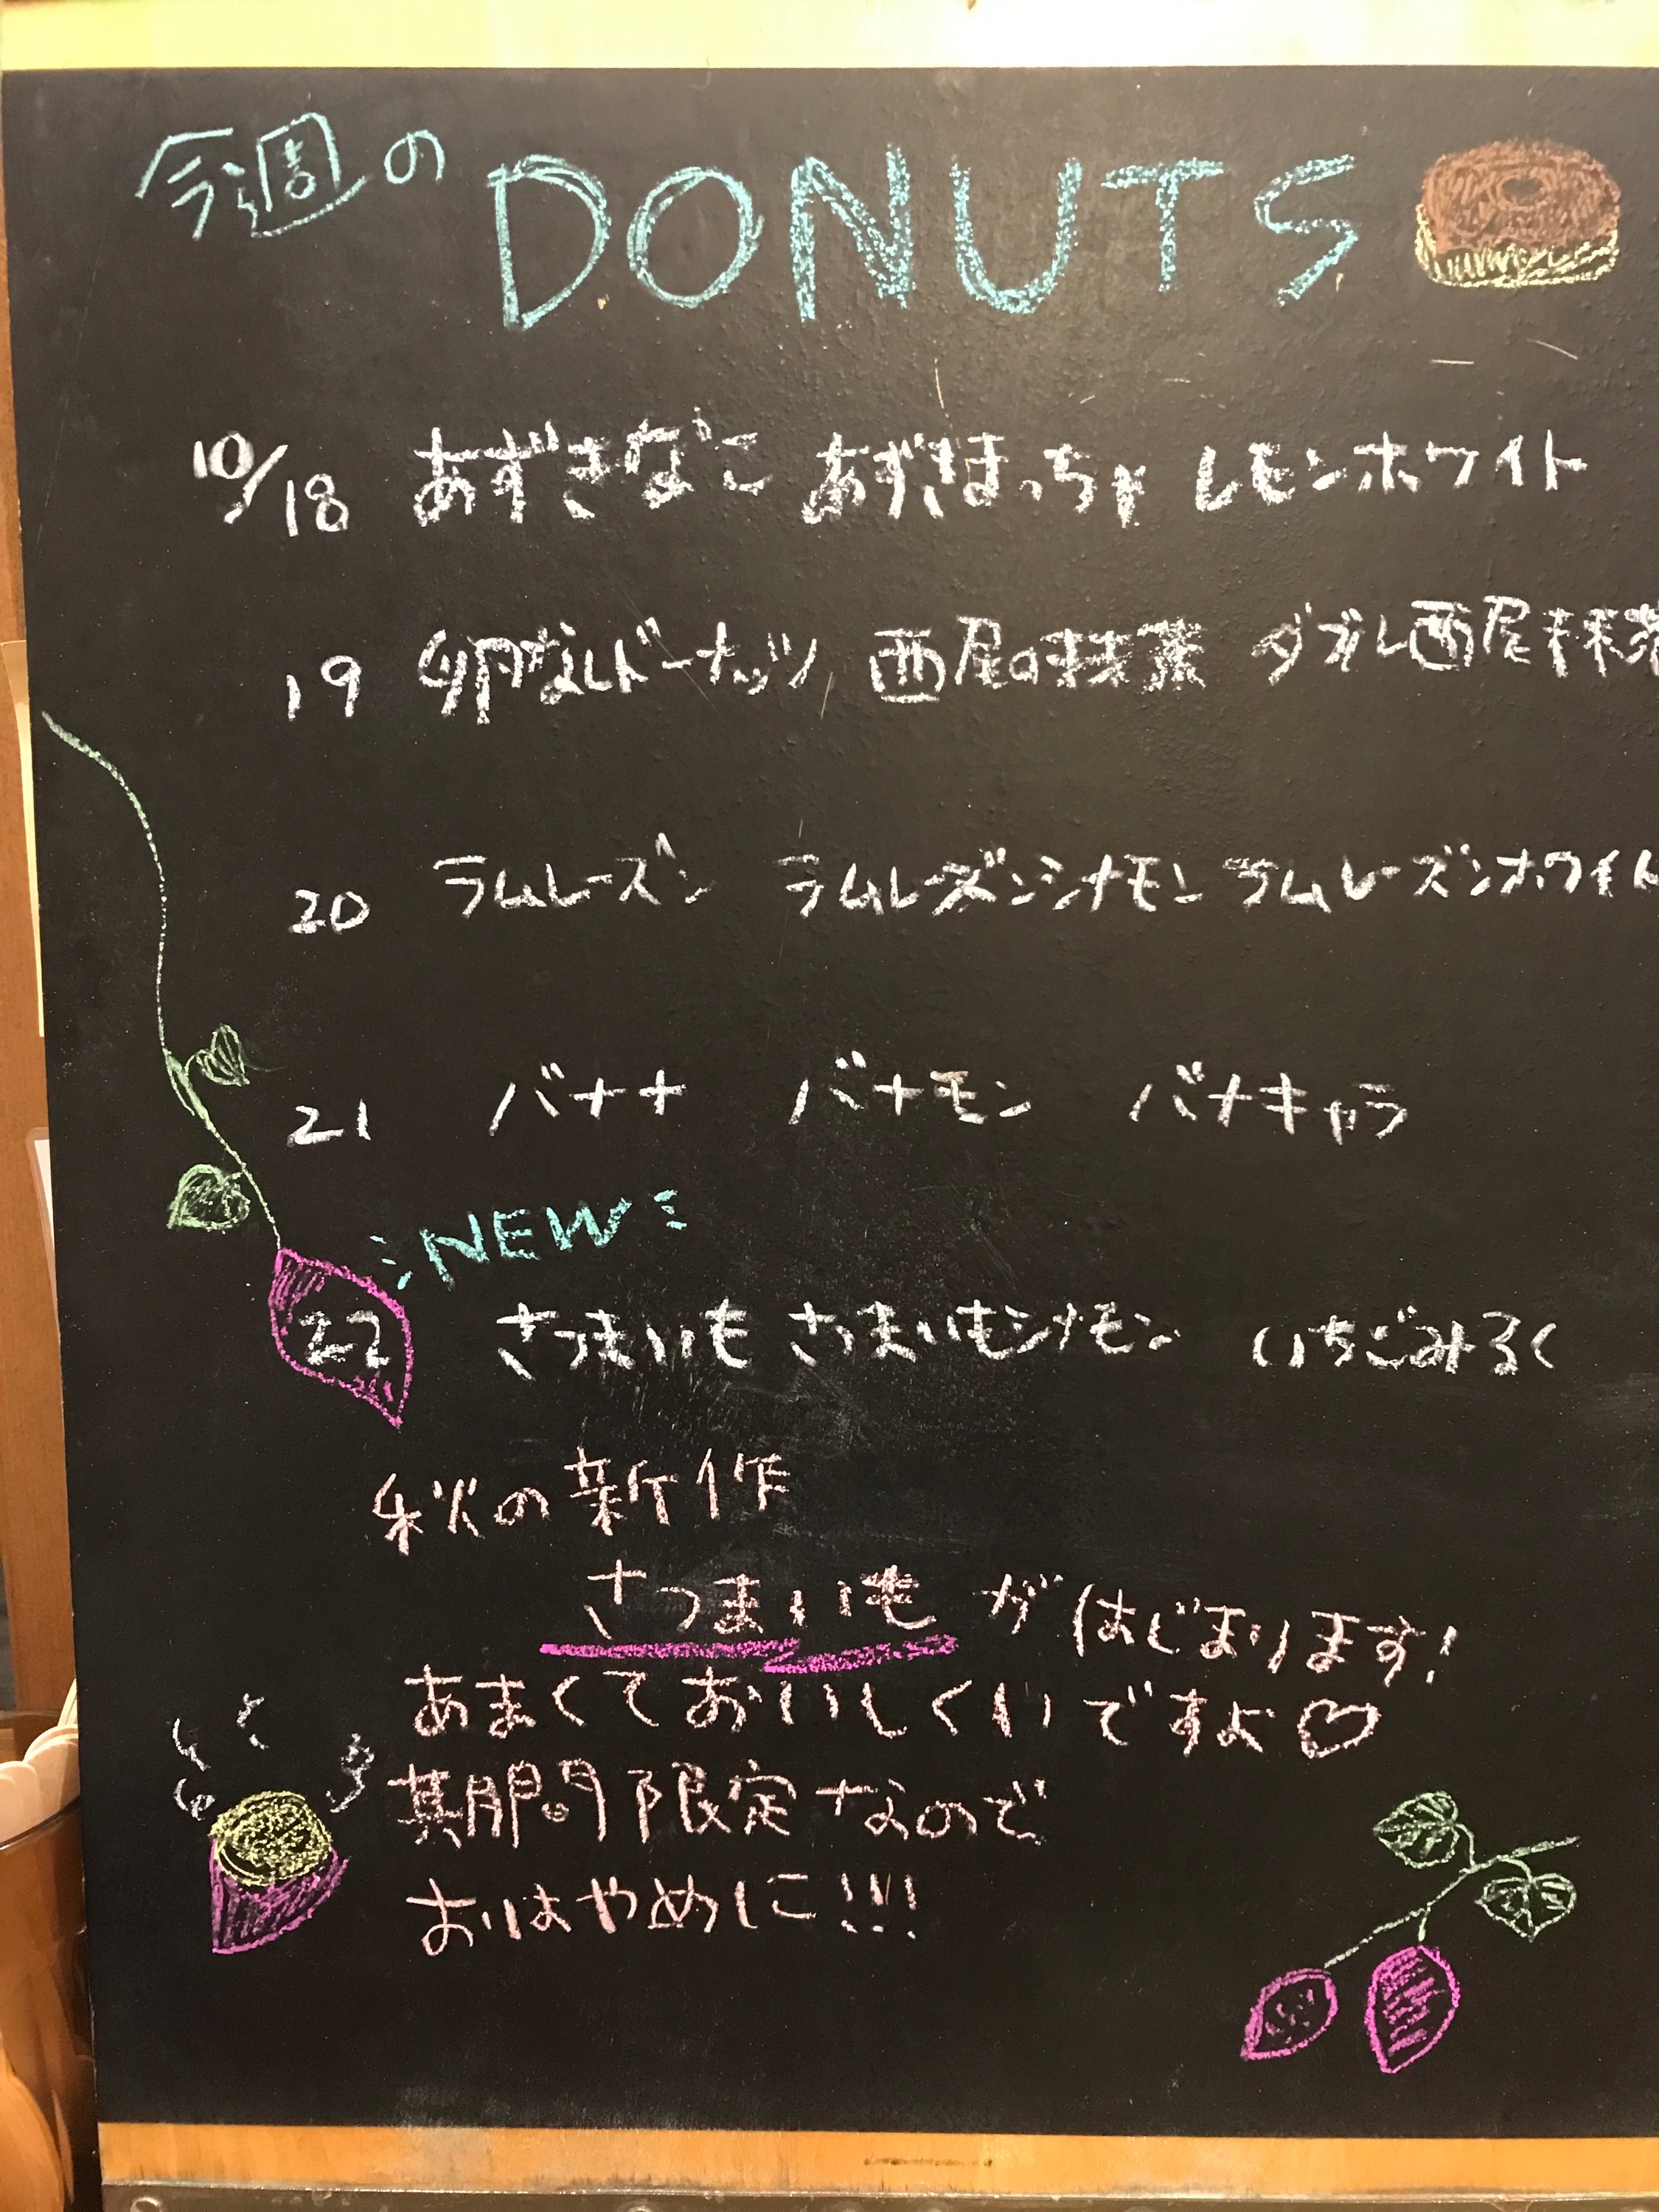 今週の DONUTS
10/18 あずきなこ あずきまっちゃ レモンホワイト
19 卵なしドーナッツ 西尾の抹茶 ダブル西尾抹茶
20 ラムレーズン ラムレーズンシナモン ラムレーズンホワイト
21 バナナ バナモン バナキャラ
NEW
22 さつまいも さつまいもシナモン いちごみるく
秋の新作
さつまいもがはじまります!
あまくておいしくいですよ♡
期間限定なので
おはやめに!!!